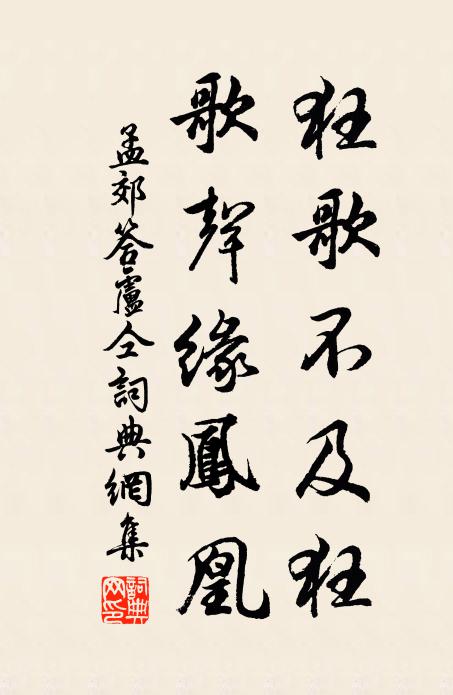 狂歌不及狂
歌聲緣鳳凰
孟郊答盧仝詞典網集
詞典網印